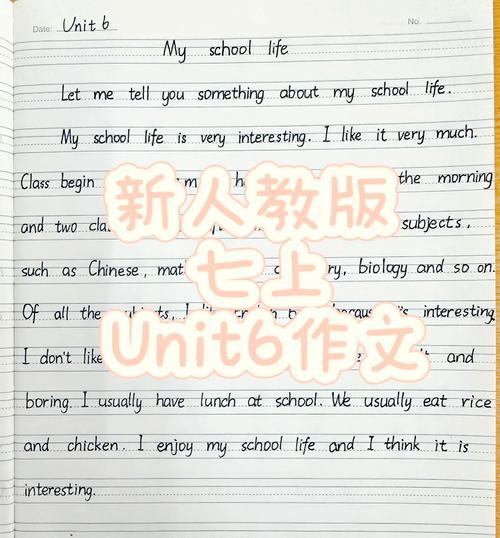 Date: Unit 6
No.
My school life
Let me tell you something about my school life.
My school life is very interesting. I like it very much.
Class begin the morning
and two subjects,
such as Chinese, biology and so on.
Of all the I interesting.
I don't like and
boring. I usually have lunch at school. We usually eat rice
and chicken. I enjoy my school life and I think it is
interesting.
新人教版
七上
Unit6作文